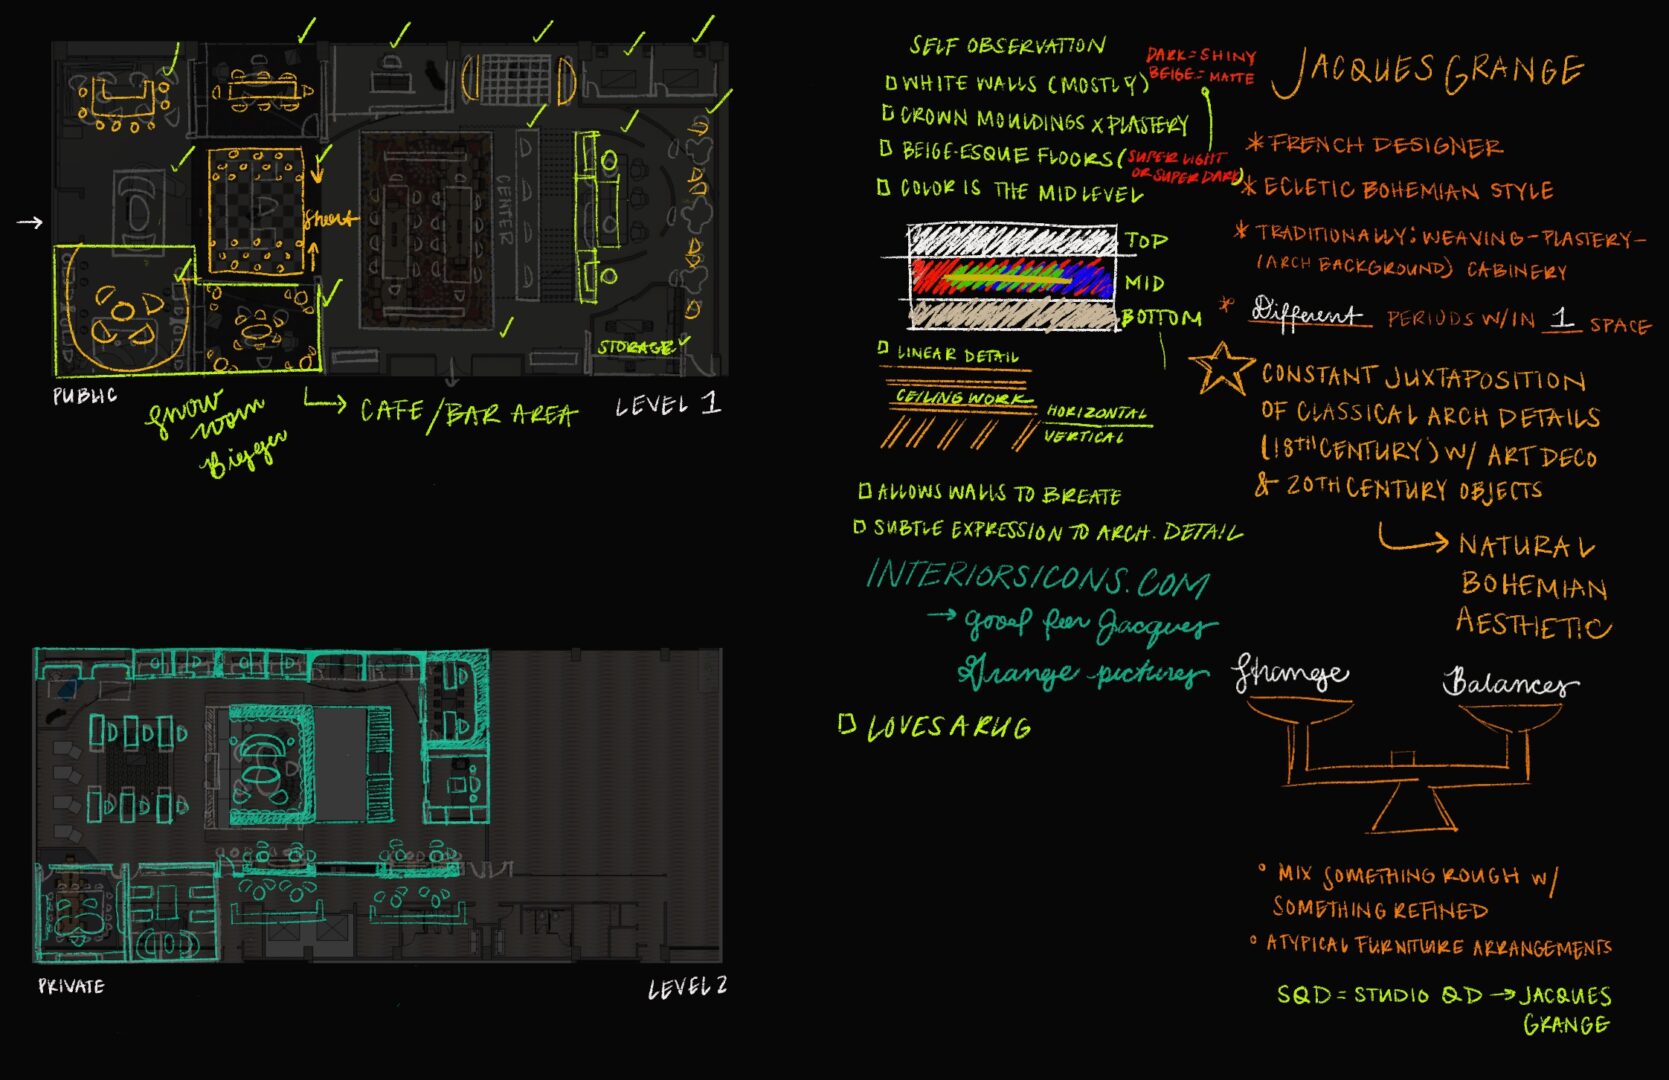 CENTER
Short
STORAGE
PUBLIC
Show
room
Bigger
CAFE/BAR AREA
LEVEL 1
PRIVATE
LEVEL 2
SELF OBSERVATION
WHITE WALLS (MOSTLY)
DARK = SHINY
BEIGE = MATTE
CROWN MOULDINGS X PLASTERY
BEIGE-ESQUE FLOORS (SUPER LIGHT
OR SUPER DARK)
COLOR IS THE MID LEVEL
TOP
MID
BOTTOM
LINEAR DETAIL
CEILING WORK
HORIZONTAL
VERTICAL
ALLOWS WALLS TO BREATE
SUBTLE EXPRESSION TO ARCH. DETAIL
INTERIORSICONS.COM
→ good for Jacques
Grange pictures
LOVES A RUG
JACQUES GRANGE
* FRENCH DESIGNER
* ECLETIC BOHEMIAN STYLE
* TRADITIONALLY: WEAVING-PLASTERY-
(ARCH BACKGROUND) CABINERY
* Different PERIODS W/IN 1 SPACE
CONSTANT JUXTAPOSITION
OF CLASSICAL ARCH DETAILS
(18TH CENTURY) W/ ART DECO
& 20TH CENTURY OBJECTS
NATURAL
BOHEMIAN
AESTHETIC
Strange
Balances
° MIX SOMETHING ROUGH W/
SOMETHING REFINED
° ATYPICAL FURNITURE ARRANGEMENTS
SQD = STUDIO QD → JACQUES
GRANGE